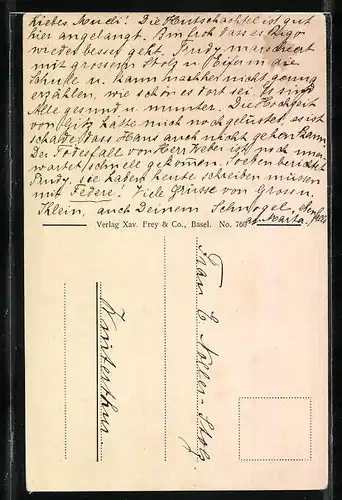 Liebes Trudi! Die Hutschachtel ist gut
hier angelangt. Bin froh dass es Vigo
wieder besser geht. Trudy marschiert
mit grossem Stolz u. Eifer in die
Schule u. kann nachher nicht genug
erzählen, wie schön es dort sei. Es sind
Alle gesund u. munter. Die Hochzeit
von Gitz hätte mich noch gelüstet, es ist
schade, dass Hans auch nicht gehen kann.
Der Todesfall von Herr Weber ist noch uner-
wartet schnell gekommen. Soeben berichtet
Trudy, sie haben heute schreiben müssen
mit Federe! Viele Grüsse von Gross u.
Klein, auch Deinem Schwogel,
Marta.
Verlag Xav. Frey & Co., Basel. No. 760
Frau E. Noller-Stolz
Winterthur